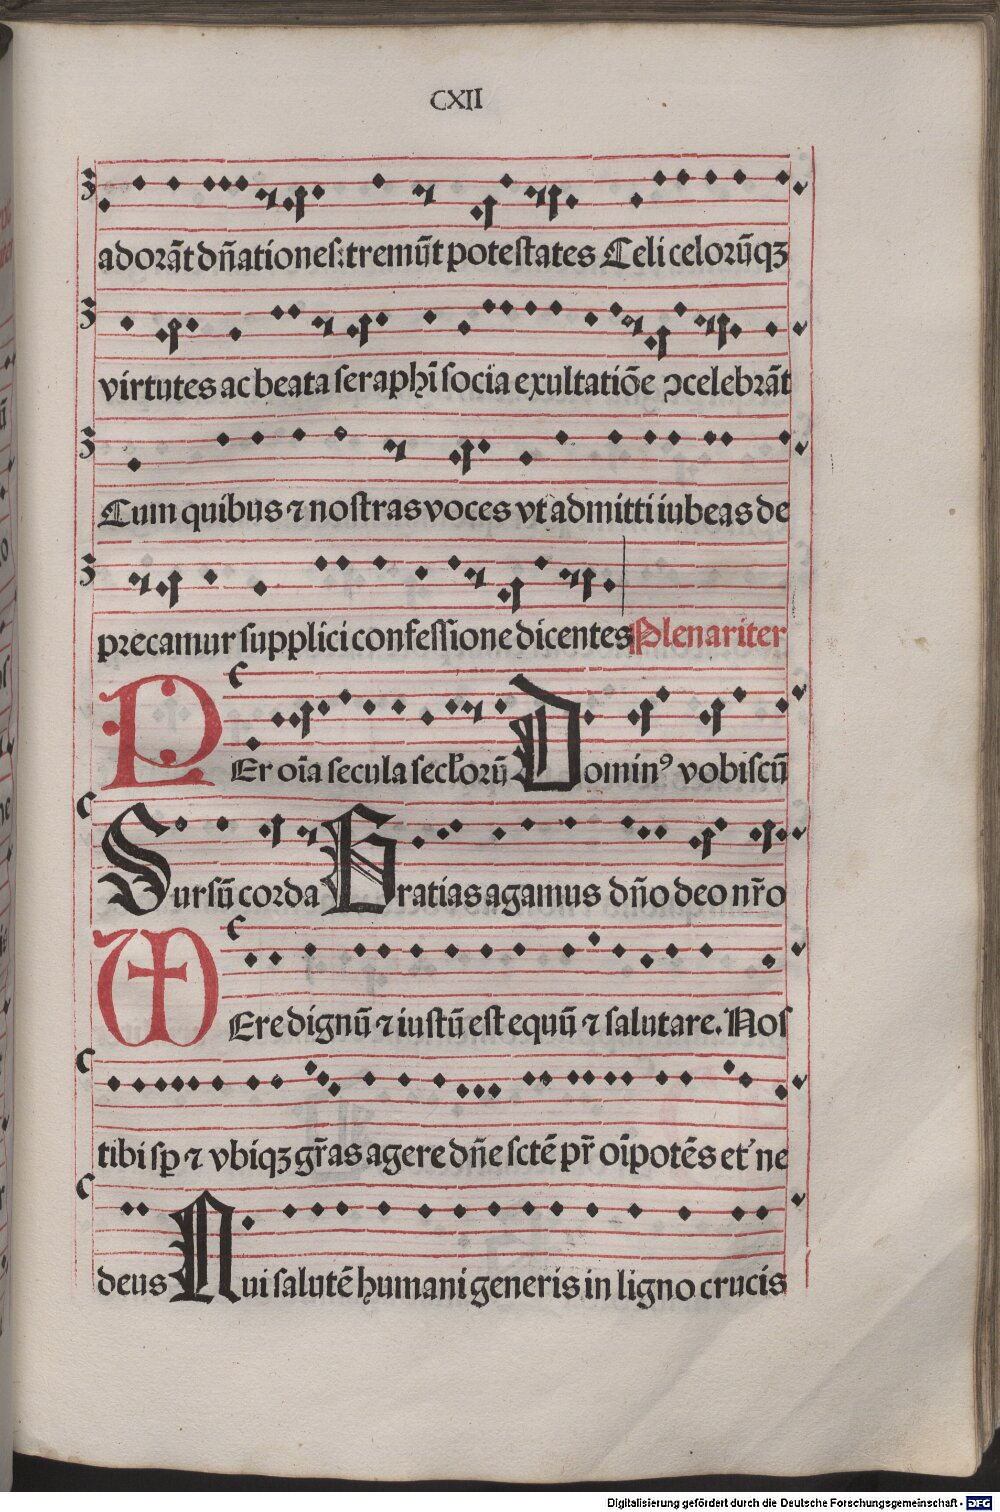 CXII
adorãt dñationes: tremũt potestates Celi celorũqꝫ
virtutes ac beata seraphĩ socia exultatiõe ↄcelebrãt
Cum quibus ⁊ nostras voces vt admitti iubeas de
precamur supplici confessione dicentes Plenariter
PEr oĩa secula secl'orũ Dominꝰ vobiscũ
Sursũ corda Gratias agamus dño deo nr̃o
VEre dignũ ⁊ iustũ est equũ ⁊ salutare. Nos
tibi sꝑ ⁊ vbiqꝫ gr̃as agere dñe sctẽ pr̃ oĩpotẽs et'ne
deus Qui salutẽ humani generis in ligno crucis
Digitalisierung gefördert durch die Deutsche Forschungsgemeinschaft - DFG